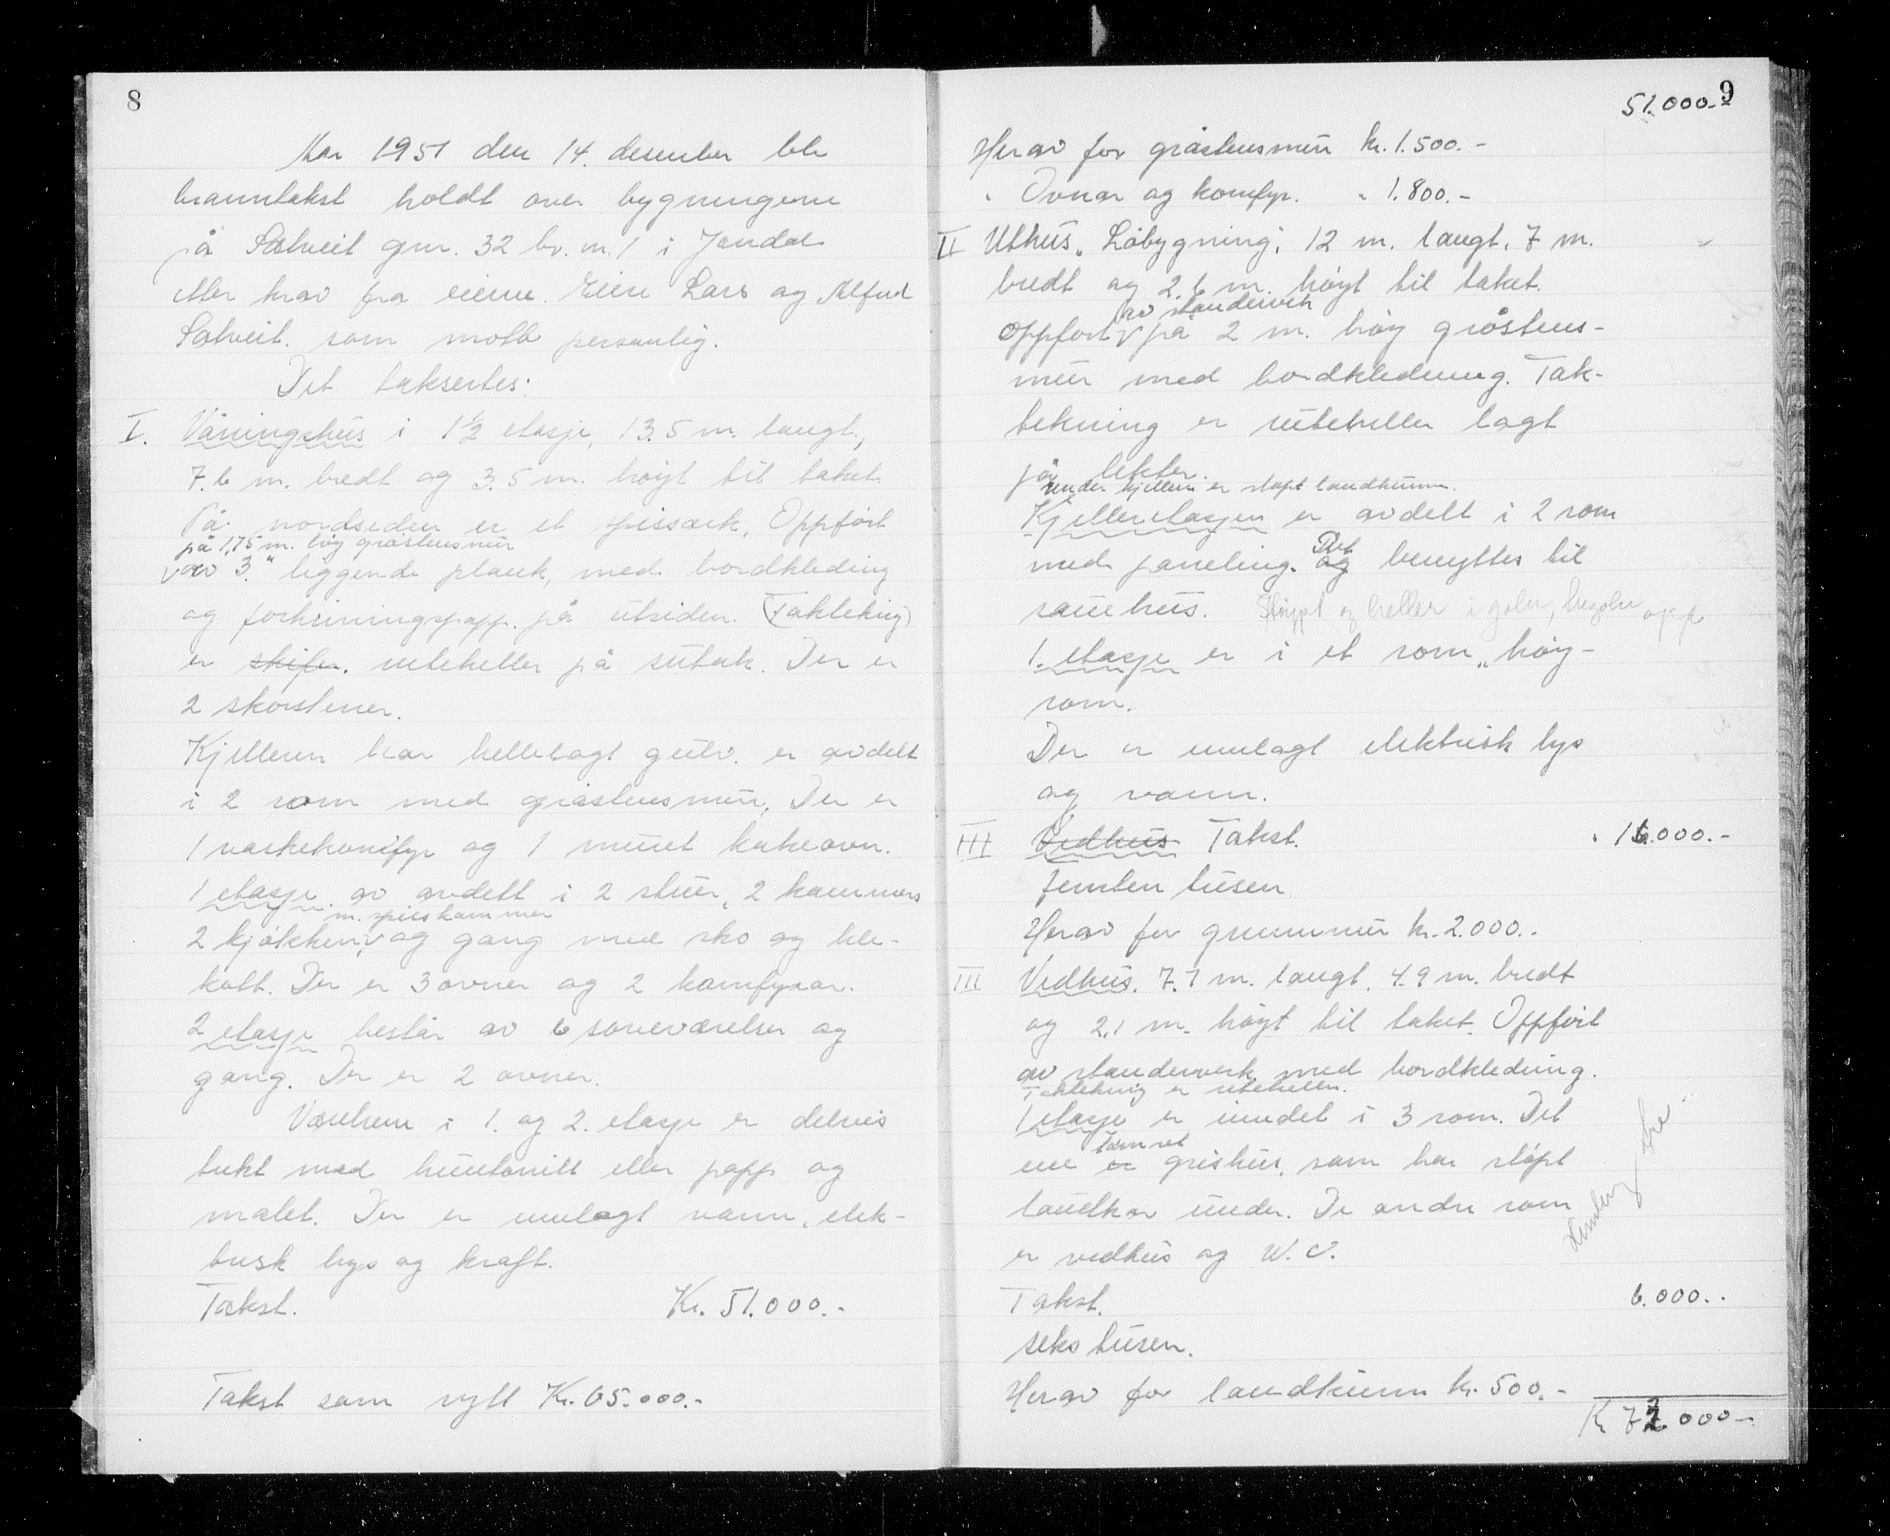 8
Aar 1951 den 14. desember ble
branntakst holdt over bygningene
på Sælveit gnr. 32 br.nr. 1 i Jondal
etter krav fra eierne. Eiere Lars og Alfred
Sælveit. som møtte personlig.
Det taksertes:
I. Våningshus i 1½ etasje, 13.5 m. langt,
7.6 m. bredt og 3.5 m. høyt til taket.
På nordsiden er et spissark, Oppført
på 1,75 m. høy gråstensmur
av 3" liggende plank, med bordkleding
og forhuningspapp på utsiden. (Taktekng)
er skifer. ruteheller på sutak. Der er
2 skorstener.
Kjelleren har hellelagt gulv. er avdelt
i 2 rom med gråstensmur. Der er
1 vaskekomfyr og 1 muret bakeovn.
1 etasje. av avdelt i 2 stuer, 2 kammers
m. spisskammer
2 kjøkken, og gang med sko og kle-
kott. Der er 3 ovner og 2 komfyrar.
2 etasje består av 6 soveværelser og
gang. Der er 2 ovner.
Værelsene i 1. og 2. etasje er delvis
trukt med huntonitt eller papp og
malet. Der er innlagt vann, elek-
trisk lys og kraft.
Takst. Kr. 51.000.-
Takst som nytt Kr. 65.000.-
9
51.000.-
Herav for gråstensmur kr. 1.500.-
" Ovnar og komfyr. " 1.800.-
II Uthus "Løbygning", 12 m. langt, 7 m.
bredt og 2.6 m. høyt til taket.
av standerverk
Oppført på 2 m. høy gråstens-
mur med bordkledning. Tak-
tekning er ruteheller lagt
på lekter.
Under kjelleren er støpt landkum.
Kjelleretasjen er avdelt i 2 rom
med paneling. og Det benyttes til
sauehus. Støypt og heller i golv, opp
1. etasje er i et rom "høy-
rom.
Der er innlagt elektrisk lys
og vann.
III Vedhus Takst. " 16.000.-
femten tusen
Herav for grunnmur kr. 2.000.-
III Vedhus. 7.7 m. langt, 4.9 m. bredt
og 2,1 m. høyt til taket. Oppført
av standerverk med bordkledning.
Taktekning er ruteheller.
1 etasje er inndelt i 3 rom. Det
ene er grishus, som har støpt
landkar under. De andre rom
er vedhus og W.C.
Takst. 6.000.-
seks tusen.
Herav for landkum kr. 500.-
Kr 72.000.-